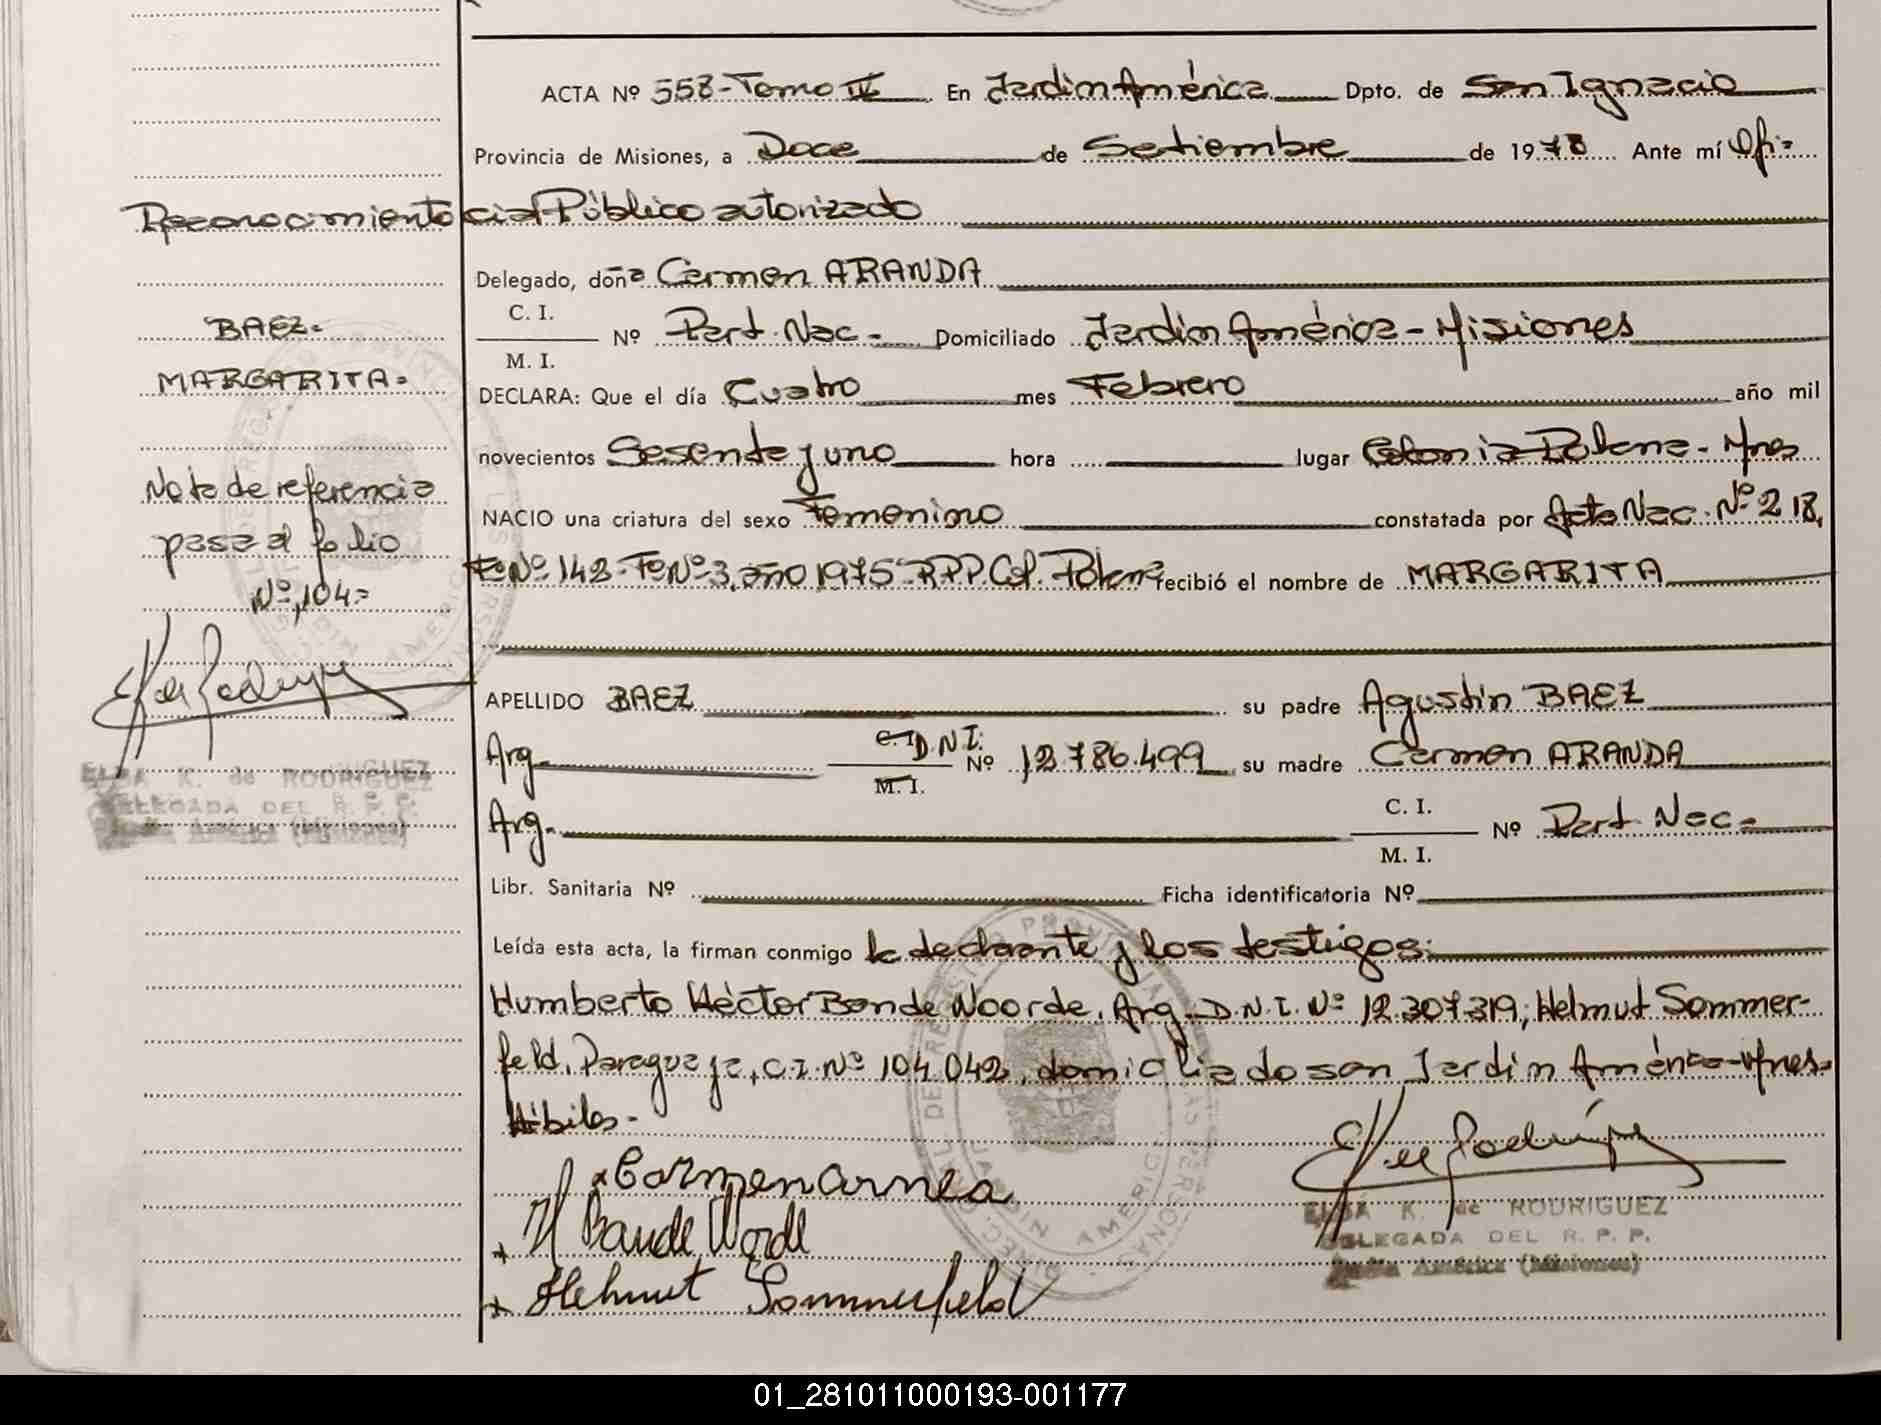 ACTA Nº 558-Tomo IV En Jardín América Dpto. de San Ignacio
Provincia de Misiones, a Doce de Setiembre de 1978 Ante mí Ofi-
Reconocimiento
cial Público autorizado
Delegado, doña Carmen ARANDA
C. I.
Nº Part. Nac.- Domiciliado Jardín América-Misiones
M. I.
BAEZ.-
MARGARITA.-
DECLARA: Que el día Cuatro mes Febrero año mil
novecientos Sesenta y uno hora lugar Colonia Polana-Mnes
Nota de referencia
pasa al folio
Nº, 104.-
NACIO una criatura del sexo Femenino constatada por Acta Nac. Nº 218,
Fº Nº 142-Tº Nº 3, año 1975-RPP Col. Polana recibió el nombre de MARGARITA
APELLIDO BAEZ su padre Agustín BAEZ
Arg- C.I. D.N.I. Nº 12.786.499 su madre Carmen ARANDA
M. I.
ELSA K. de RODRIGUEZ
DELEGADA DEL R. P. P.
Jardín América (Misiones)
Arg- C. I. Nº Part. Nac.-
M. I.
Libr. Sanitaria Nº Ficha identificatoria Nº
Leída esta acta, la firman conmigo la declarante y los testigos:
Humberto Héctor Bande Woorde, Arg. D.N.I. Nº 12.307.319; Helmut Sommer-
feld, Paraguaya, C.I. Nº 104.042, domiciliados en Jardín América-Mnes.
Hábiles-
x Carmen arnea
x H Bande Worde
x Helmut Sommerfeld
ELSA K. de RODRIGUEZ
DELEGADA DEL R. P. P.
Jardín América (Misiones)
01_281011000193-001177